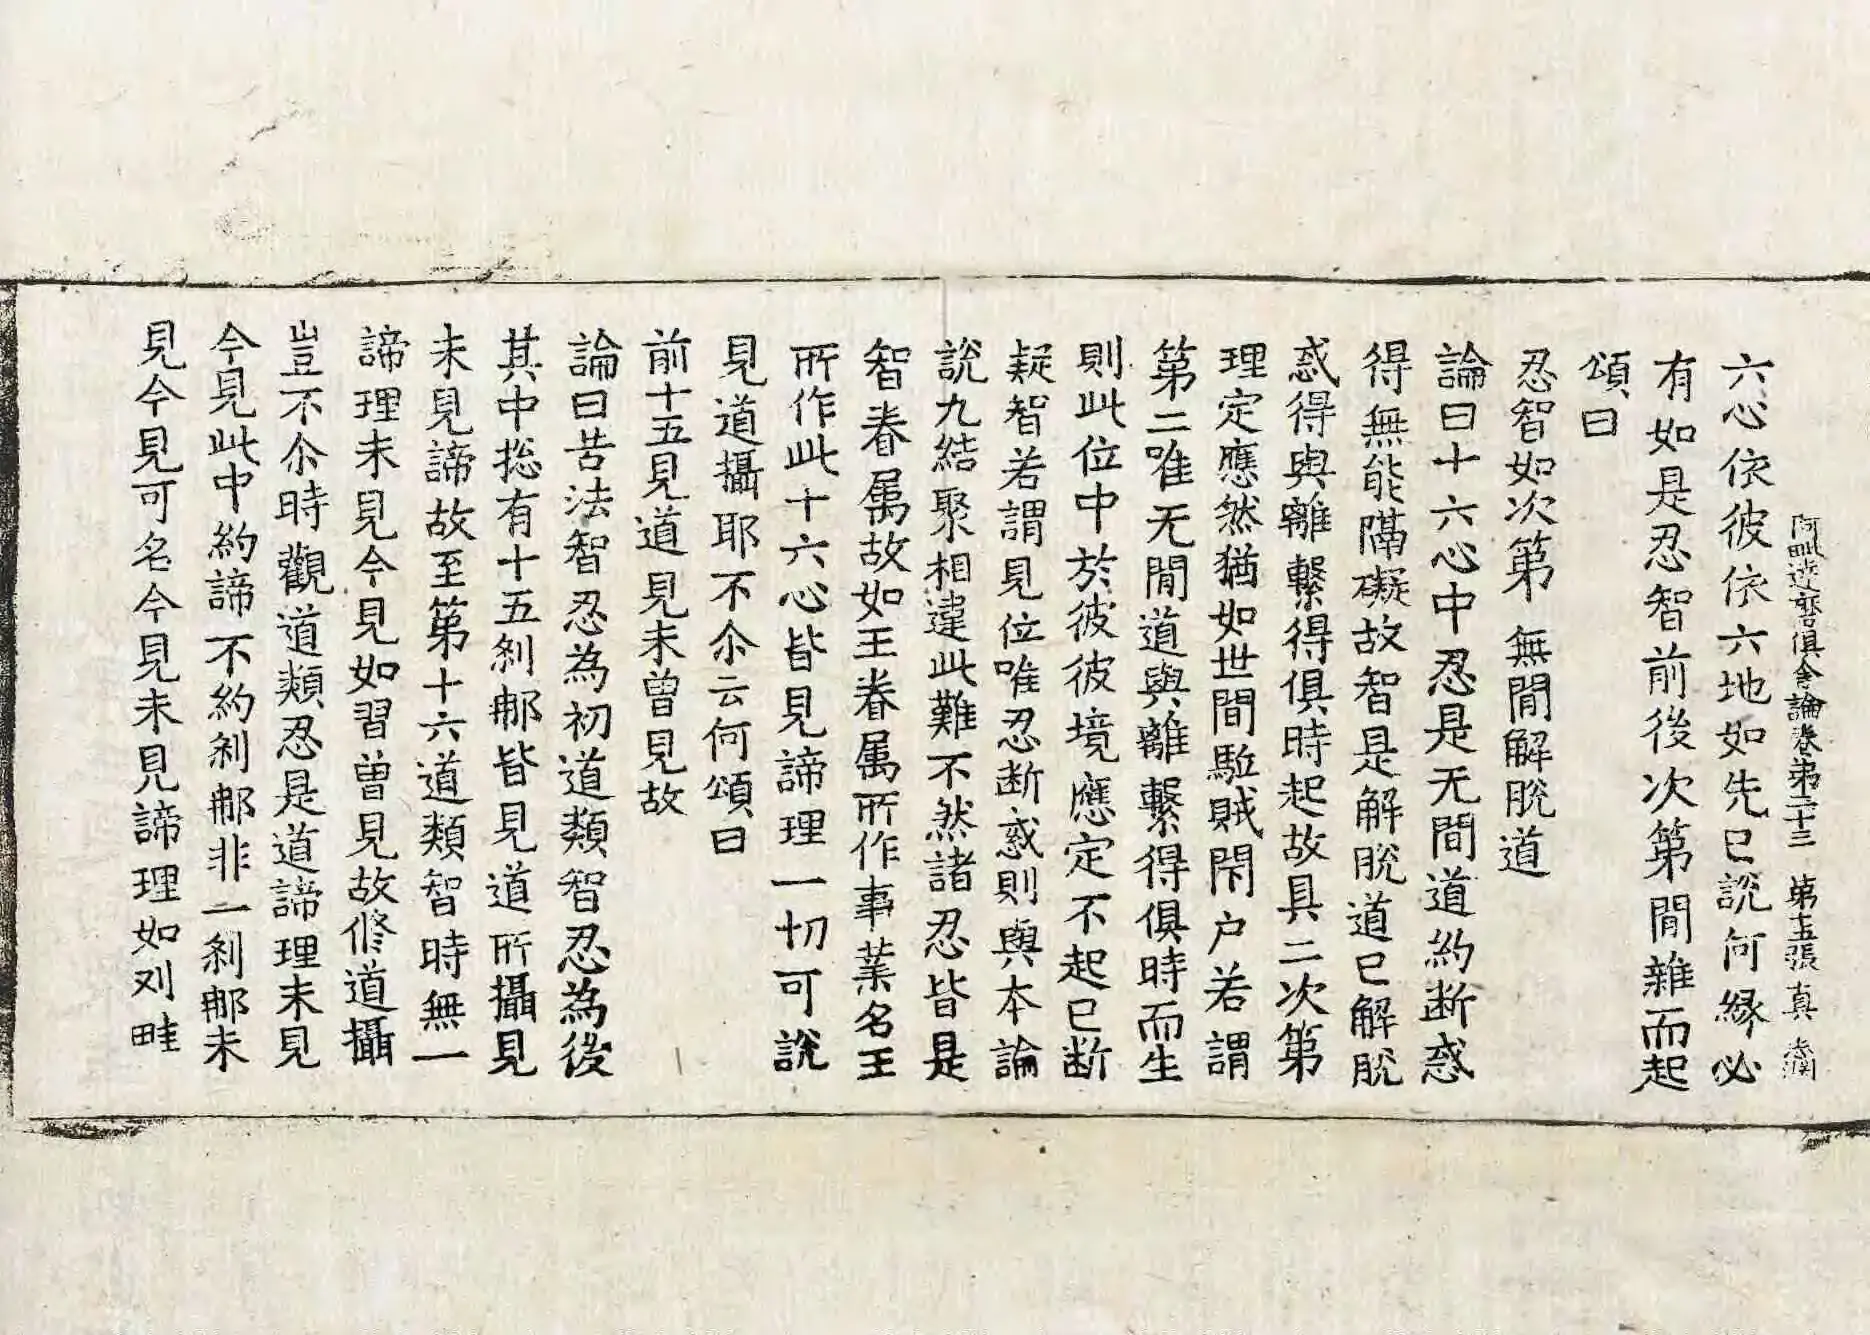 六心依彼依六地如先已說何縁必
阿毗達磨俱舍論卷苐二十三 第十五張 真
有如是忍智前後次第閒雜而起
頌曰
忍智如次第 無閒解脫道
論曰十六心中忍是无間道約断惑
得無能隔礙故智是解脫道已解脫
惑得與離繫得俱時起故具二次第
理定應然猶如世間駈賊閇户若謂
第二唯无閒道與離繫得俱時而生
則此位中於彼彼境應定不起已断
疑智若謂見位唯忍断惑則與本論
說九結聚相違此難不然諸忍皆是
智眷属故如王眷属所作事業名王
所作此十六心皆見諦理一切可說
見道攝耶不尒云何頌曰
前十五見道 見未曾見故
論曰苦法智忍為初道類智忍為後
其中捴有十五剎那皆見道所攝見
未見諦故至第十六道類智時無一
諦理未見今見如習曾見故修道攝
豈不尒時觀道類忍是道諦理未見
今見此中約諦不約剎那非一剎那未
見今見可名今見未見諦理如刈畦